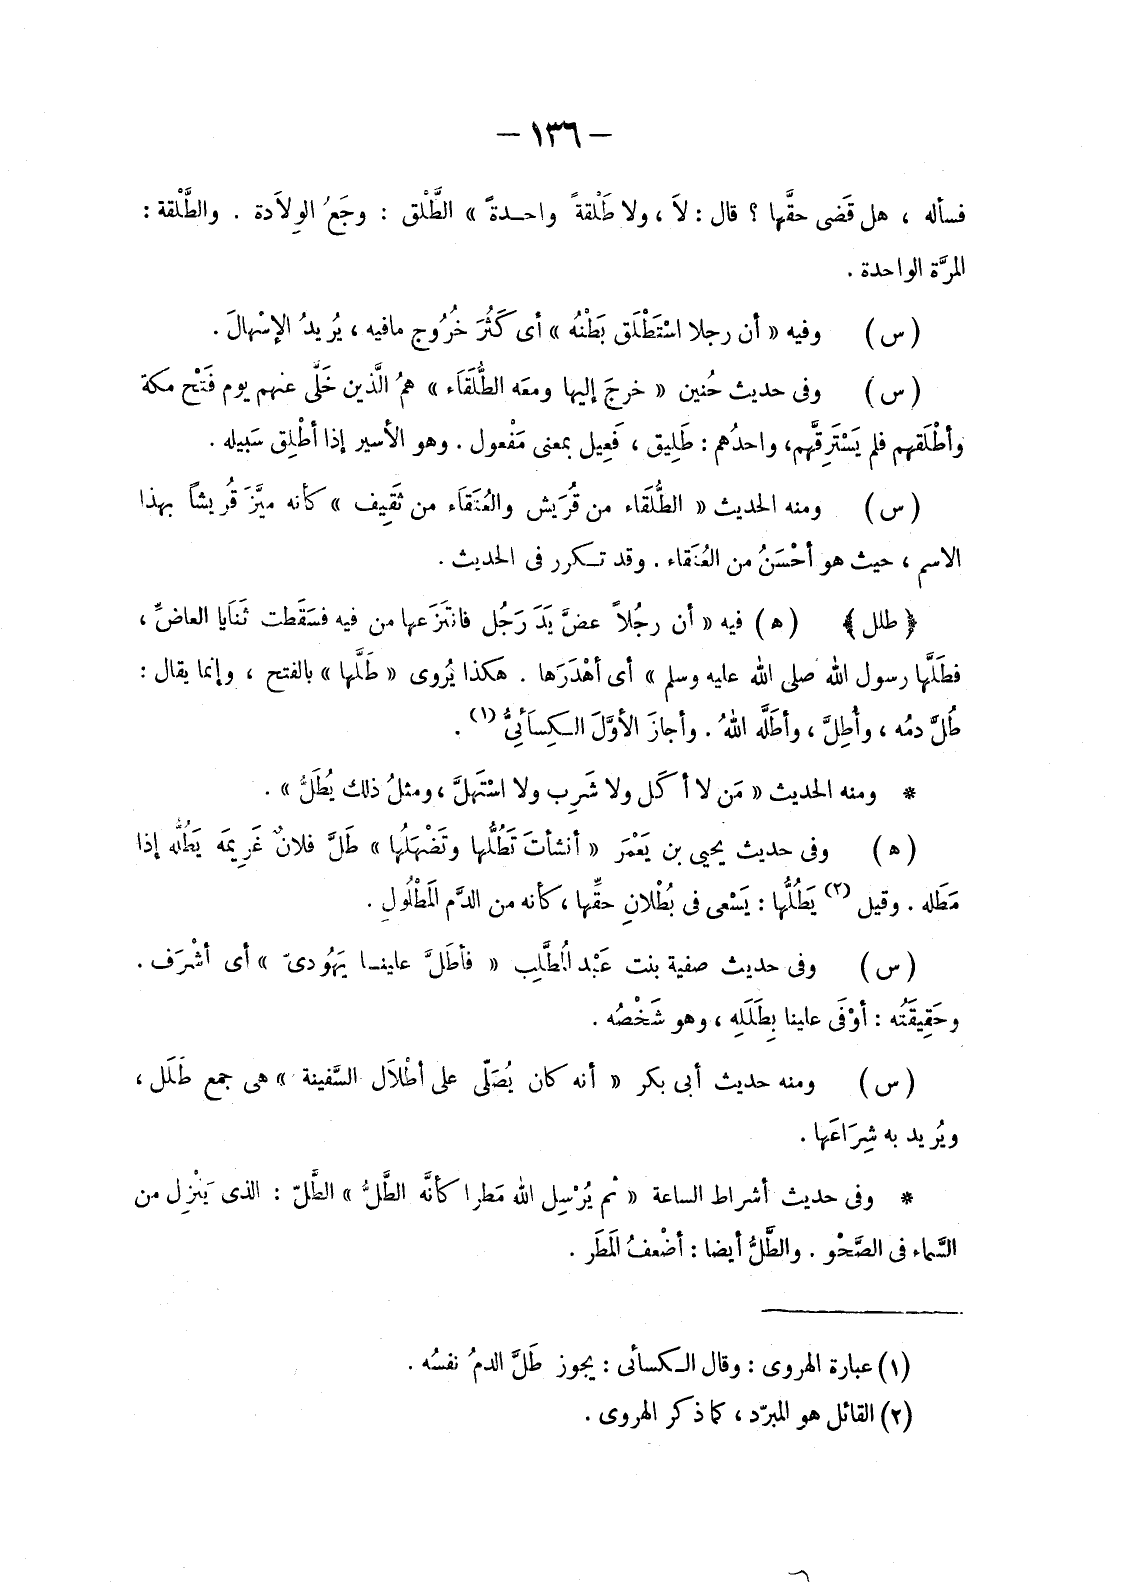 — ١٣٦ —
فسأله ، هل قَضى حقَّها ؟ قال : لاَ ، ولا طَلْقةً واحـدةً » الطَّلْق : وجَعُ الوِلاَدة . والطَّلْقة :
المرَّة الواحدة .
( س ) وفيه « أن رجلا اسْتَطْلَق بَطْنُه » أى كَثُرَ خُرُوج مافيه ، يُريدُ الإسْهالَ .
( س ) وفى حديث حُنين « خرجَ إليها ومعَه الطُّلَقَاء » همُ الَّذين خَلَّى عنهم يوم فَتْح مكة
وأطْلَقهم فلم يَسْتَرِقَّهم، واحدُهم : طَلِيق ، فَعِيل بمعنى مَفْعول . وهو الأسير إذا أطْلِق سَبيله .
( س ) ومنه الحديث « الطُّلَقَاء من قُرَيش والعُتَقَاء من ثَقِيف » كأنه ميَّزَ قُريشاً بهذا
الاسم ، حيث هو أحْسَنُ من العُتَقاء . وقد تـكرر فى الحديث .
﴿ طلل ﴾ ( ه ) فيه « أن رجُلاً عضَّ يَدَ رَجُل فانتَزَعها من فيه فسَقَطت ثَنَايا العاضِّ ،
فطَلَّها رسول الله صلى الله عليه وسلم » أى أهْدَرَها . هكذا يُروى « طَلَّها » بالفتح ، وإنما يقال :
طُلَّ دمُه ، وأُطِلَّ ، وأطَلَّه اللهُ . وأجازَ الأوَّلَ الـكِسَائِىُّ (١) .
* ومنه الحديث « مَن لا أكَل ولا شَرِب ولا اسْتَهلَّ ، ومثلُ ذلك يُطَلُّ » .
( ه ) وفى حديث يحيى بن يَعْمَرَ « أنشأتَ تَطُلُّها وتَضْهَلُها » طَلَّ فلانٌ غَرِيمَه يَطُلُّه إذا
مَطَله . وقيل (٢) يَطُلُّها : يَسْعى فى بُطْلانِ حقِّها ، كأنه من الدَّم المَطْلُولِ .
( س ) وفى حديث صفية بنت عَبْد المُطَّلِب « فأطَلَّ علينـا يَهُودىّ » أى أشْرَف .
وحَقِيقَتُه : أوْفَى علينا بِطَلَلِه ، وهو شَخْصُه .
( س ) ومنه حديث أبى بكر « أنه كان يُصَلّى على أطْلاَل السَّفينة » هى جمع طَلَل ،
ويُريد به شِرَاعَها .
* وفى حديث أشراط الساعة « ثم يُرْسِل الله مَطرا كأنَّه الطَّلُّ » الطَّلّ : الذى يَنْزِل من
السَّماء فى الصَّحْو . والطَّلُّ أيضا : أضْعفُ المَطَر .
(١) عبارة الهروى : وقال الـكسائى : يجوز طَلَّ الدمُ نفسُه .
(٢) القائل هو المبرّد ، كما ذكر الهروى .